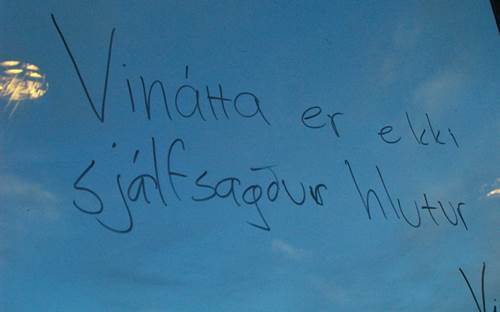 Vinátta er ekki
sjálfsagður hlutur
Vi